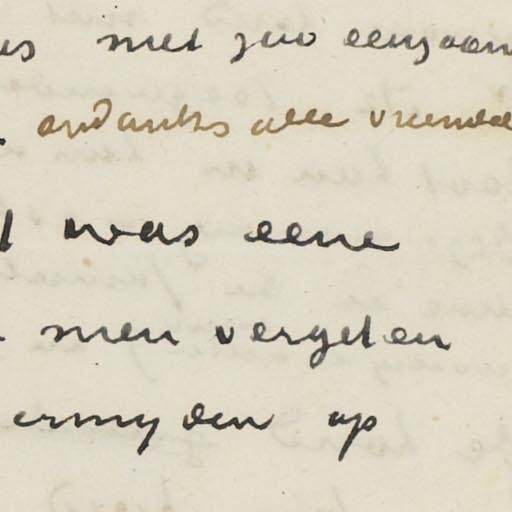 met zoo eenzaam
ondanks alle vriende
was eene
men vergeten
ermyden op